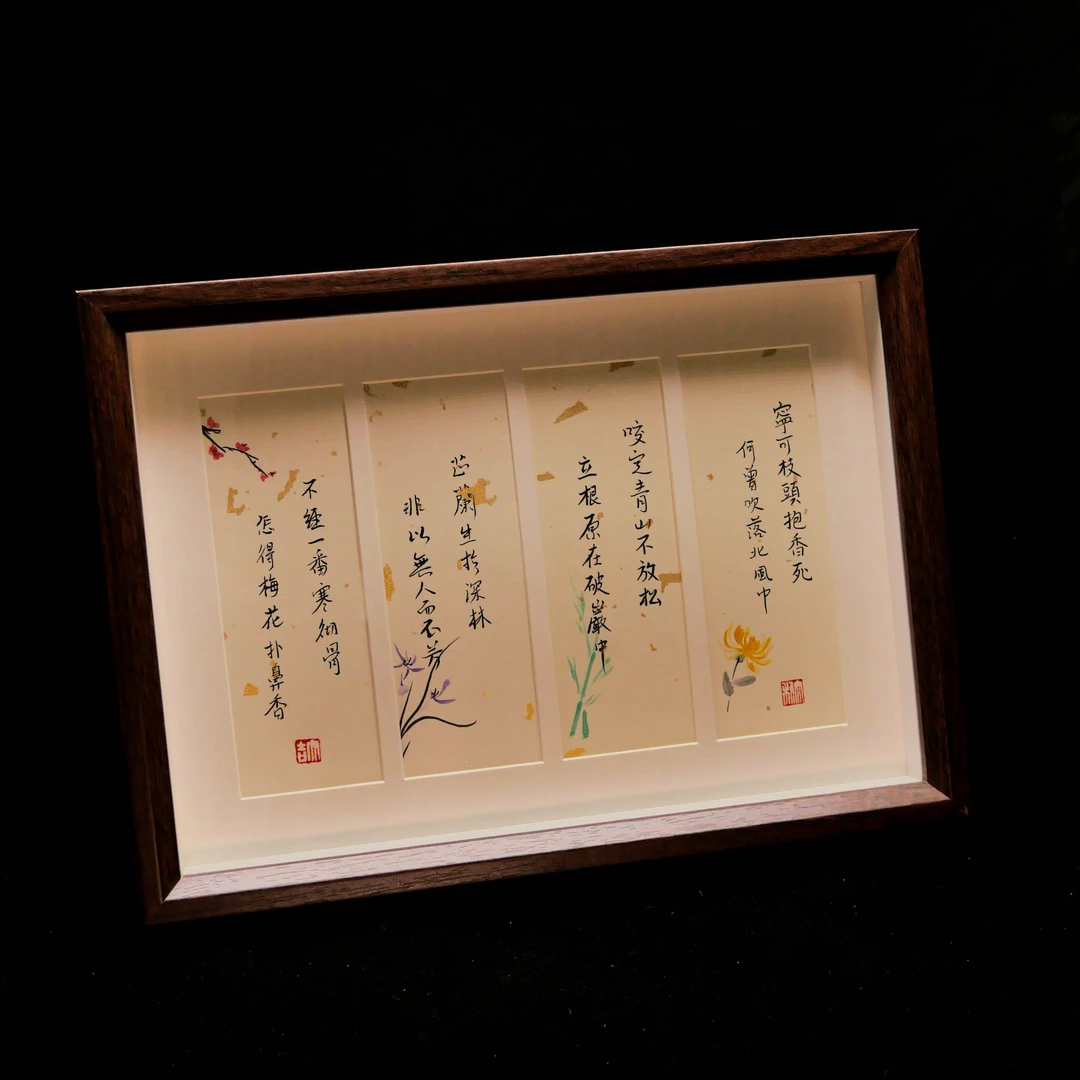 寧可枝頭抱香死
何曾吹落北風中
咬定青山不放松
立根原在破巖中
芷蘭生於深林
非以無人而不芳
不經一番寒徹骨
怎得梅花扑鼻香